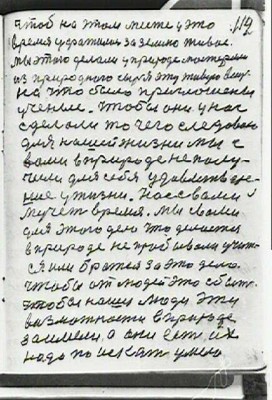 чтоб на этом месте у это 112
время ухватились за землю живое.
мы этого делали у природе матерьял
из природного сырья эту живую вещ.
на что было приложение
учение. чтобы они у нас
сделали то чего следовало
для нашей жизни мы с
вами в природе не полу-
чили для себя удовлетворе-
ние у жизни. нас с вами
мучет время. мы с вами
для этого дело это делается
в природе не пробывали учит-
ся или браться за это дело.
чтобы от людей это сбыто.
чтобы наши люди эту
возможность в природе
заимели, а они есть, их
надо поискать умело